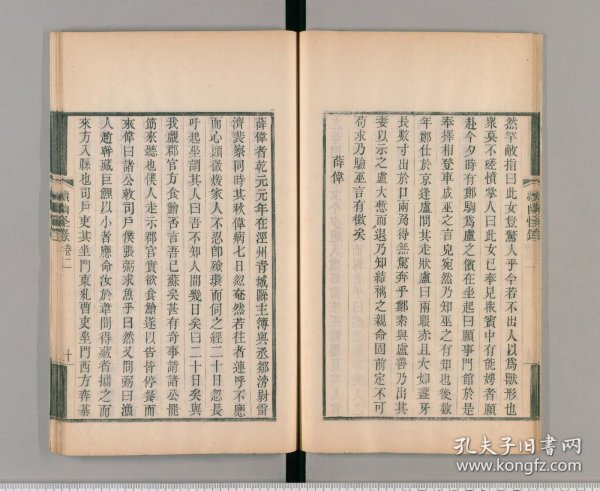 然罕敢指曰此女登驚人乎今若不出人以爲獸形也
衆莫不嗟憤掌人曰此女已奉見
赴今夕時有鄭駒爲盧之儐在坐起曰願事門館於是
奉擇相登車成巫之言兒宛然乃知巫之有知也後數
年鄭仕於京逢盧問其走狀盧曰兩眼赤且大如盞牙
長數寸出於口兩角得無驚奔乎鄭素與盧善乃出其
妻以示之盧大慙而退乃知結褵之親命固前定不可
苟求乃驗巫言有徵矣
薛偉
薛偉者乾元元年在涇州青城縣主簿與丞鄒滂尉雷
濟裴寮同時其秋偉病七日忽奄然若往者連呼不應
而心頭微煖家人不忍卽斂環而伺之經二十日忽長
呼起坐謂其人曰吾不知人間幾日矣曰二十日矣與
我覰郡官方食鱠否言吾已蘇矣甚有奇事請諸公罷
筯來聽也僕人走示郡官實欲食鱠遂以告皆停餐而
來偉曰諸公敕司戶僕張弼求魚乎曰然又問弼曰漁
人趙幹藏巨鯉以小者應命汝於葦間得藏者攜之而
來方入縣也司戶吏其坐門東糺曹吏坐門西方弈棊
卷二
十
孔夫子旧书网
www.kongfz.com